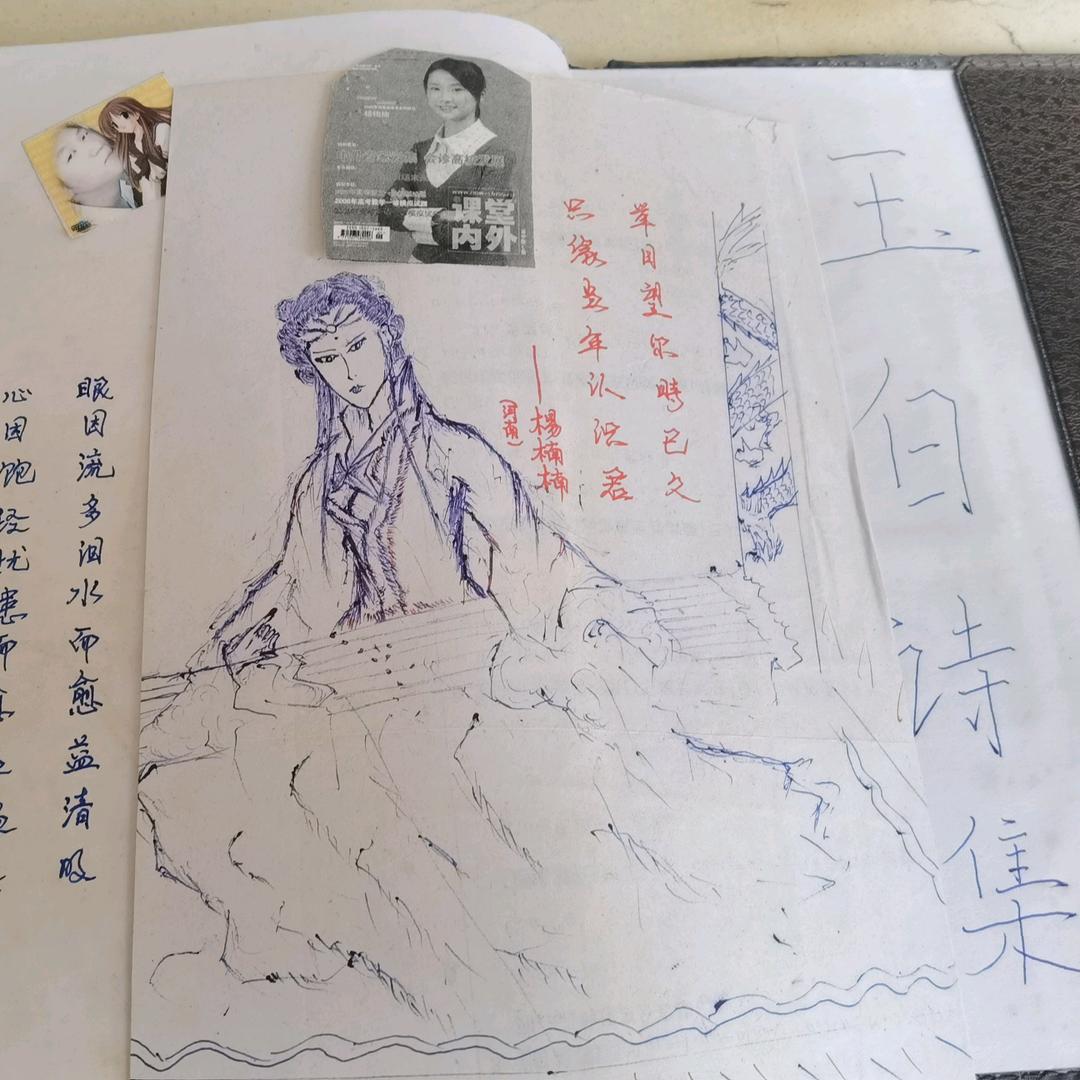 王自诗集
举目望尔時已久
只缘当年认识君
——楊楠楠
(河南)
课堂
内外
眼因流多泪水而愈益清明
心因饱经忧患而